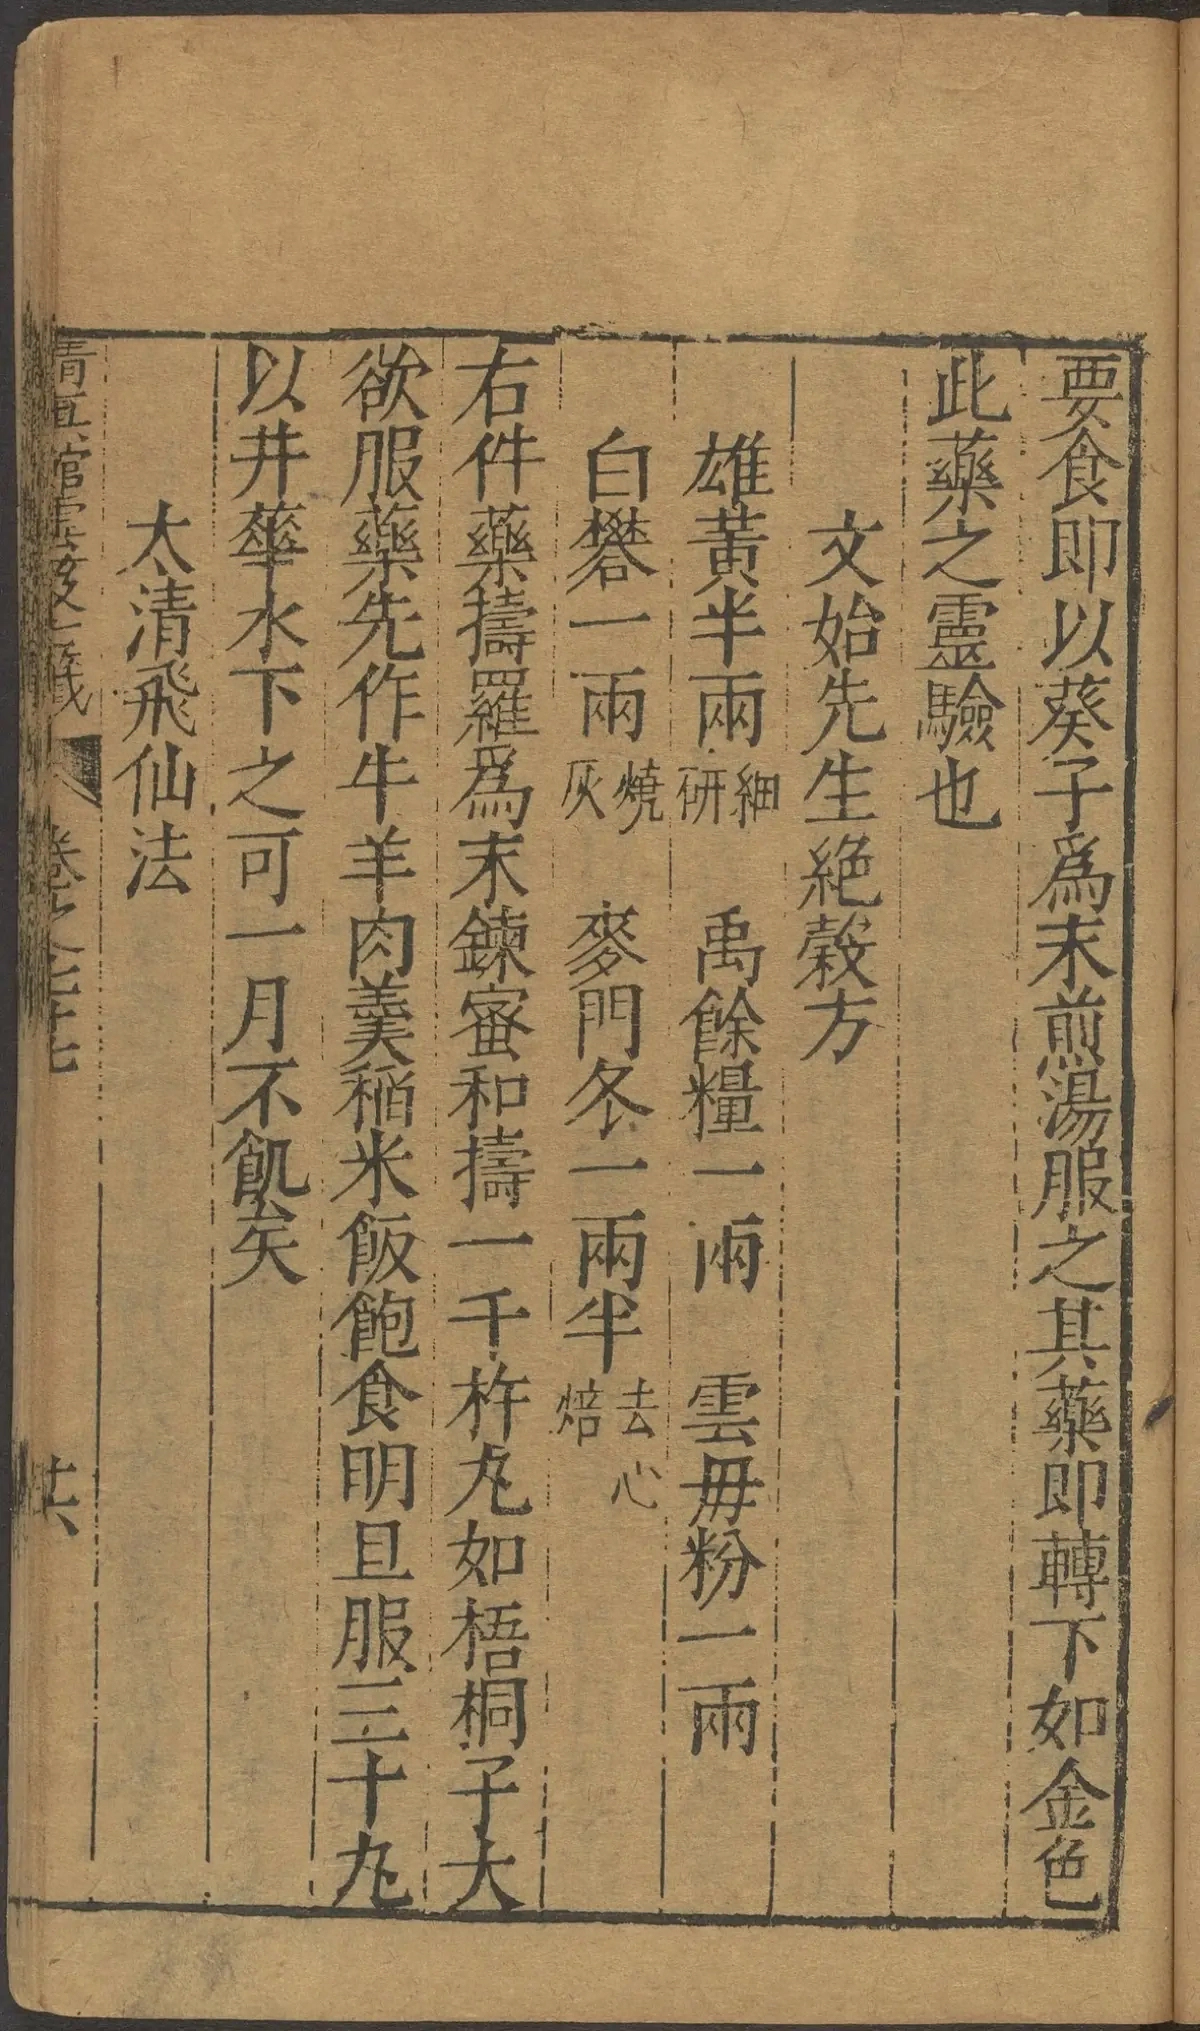 要食即以葵子爲末煎湯服之其藥即轉下如金色
此藥之靈驗也
文始先生絶穀方
雄黃半兩細研　禹餘糧一兩　雲毋粉一兩
白礬一兩燒灰　麥門冬一兩半去心焙
右件藥擣羅爲末鍊蜜和擣一千杵丸如梧桐子大
欲服藥先作牛羊肉羹稻米飯飽食明旦服三十丸
以井華水下之可一月不飢矣
太清飛仙法